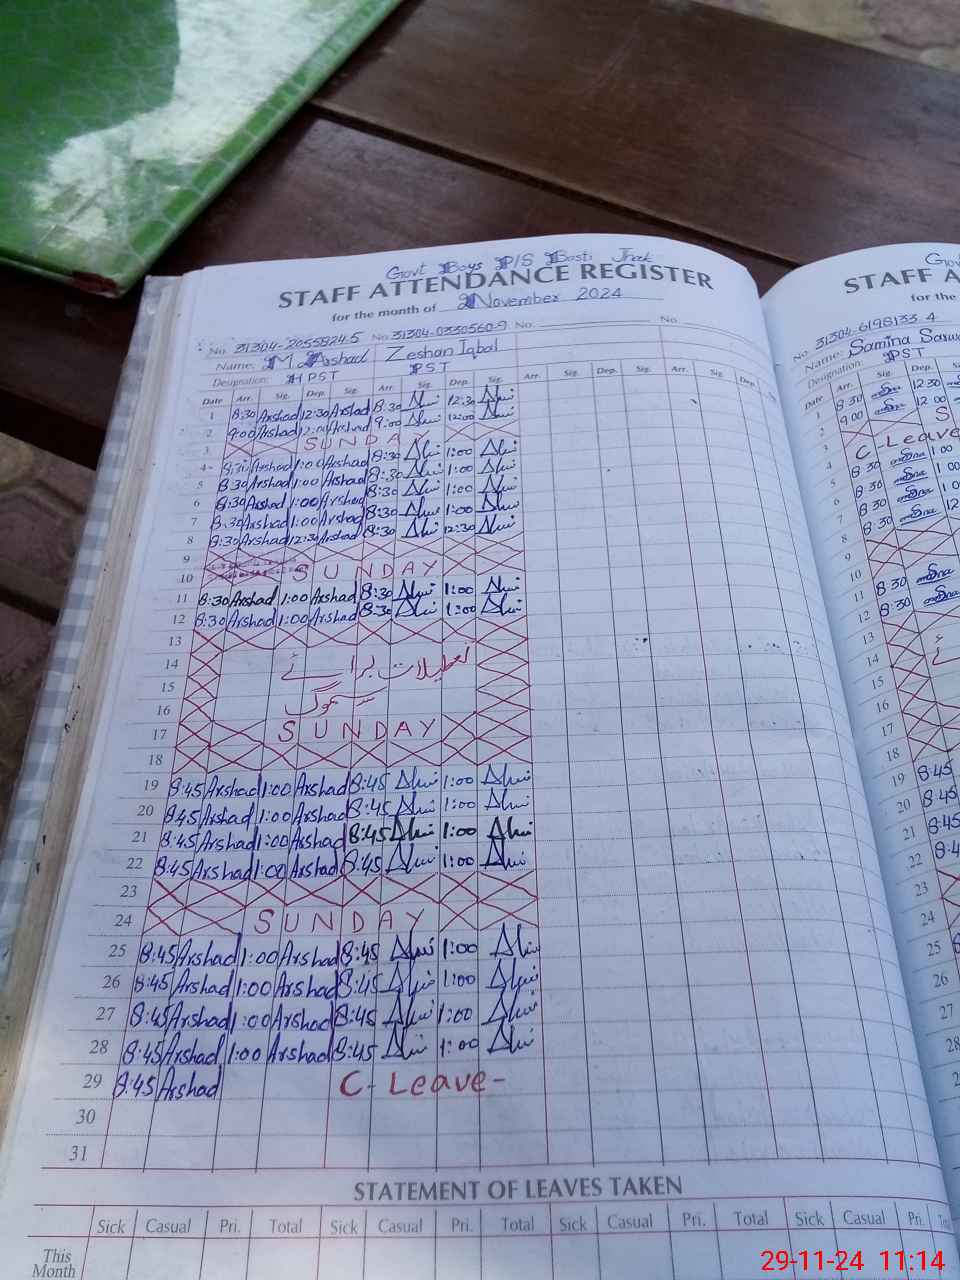 Govt Boys P/S Basti Jhok
STAFF ATTENDANCE REGISTER
for the month of November 2024
No. 31304-2055824-5 No. 31304-0330560-9 No. No.
Name: M Arshad Zeshan Iqbal
Designation: HPST PST
Date Arr. Sig. Dep. Sig. Arr. Sig. Dep. Sig. Arr. Sig. Dep. Sig. Arr. Sig. Dep.
1 8:30 Arshad 12:30 Arshad 8:30 12:30
2 9:00 Arshad 12:00 Arshad 9:00 12:00
3 SUNDA
4 8:30 Arshad 1:00 Arshad 8:30 1:00
5 8:30 Arshad 1:00 Arshad 8:30 1:00
6 8:30 Arshad 1:00 Arshad 8:30 1:00
7 8:30 Arshad 1:00 Arshad 8:30 1:00
8 8:30 Arshad 12:30 Arshad 8:30 12:30
9
10 SUNDAY
11 8:30 Arshad 1:00 Arshad 8:30 1:00
12 8:30 Arshad 1:00 Arshad 8:30 1:00
13
14 تعطیلات برائے
15
16 سموگ
17 SUNDAY
18
19 8:45 Arshad 1:00 Arshad 8:45 1:00
20 8:45 Arshad 1:00 Arshad 8:45 1:00
21 8:45 Arshad 1:00 Arshad 8:45 1:00
22 8:45 Arshad 1:00 Arshad 8:45 1:00
23
24 SUNDAY
25 8:45 Arshad 1:00 Arshad 8:45 1:00
26 8:45 Arshad 1:00 Arshad 8:45 1:00
27 8:45 Arshad 1:00 Arshad 8:45 1:00
28 8:45 Arshad 1:00 Arshad 8:45 1:00
29 8:45 Arshad C-Leave-
30
31
STATEMENT OF LEAVES TAKEN
Sick Casual Pri. Total Sick Casual Pri. Total Sick Casual Pri. Total Sick Casual Pri.
This Month
STAFF A
for the
No. 31304-6198133-4
Name: Samina
Designation: PST
Date Arr. Sig. Dep.
1 8:30 12:30
2 9:00 12:00
3 S
4 C-Leave
5 8:30 1:00
6 8:30
7 8:30
8 8:30
9
10
11 8:30
12 8:30
13
14
15
16
17
18
19 8:45
20
21 8:45
22
23
24
25
26
27
28
29-11-24 11:14